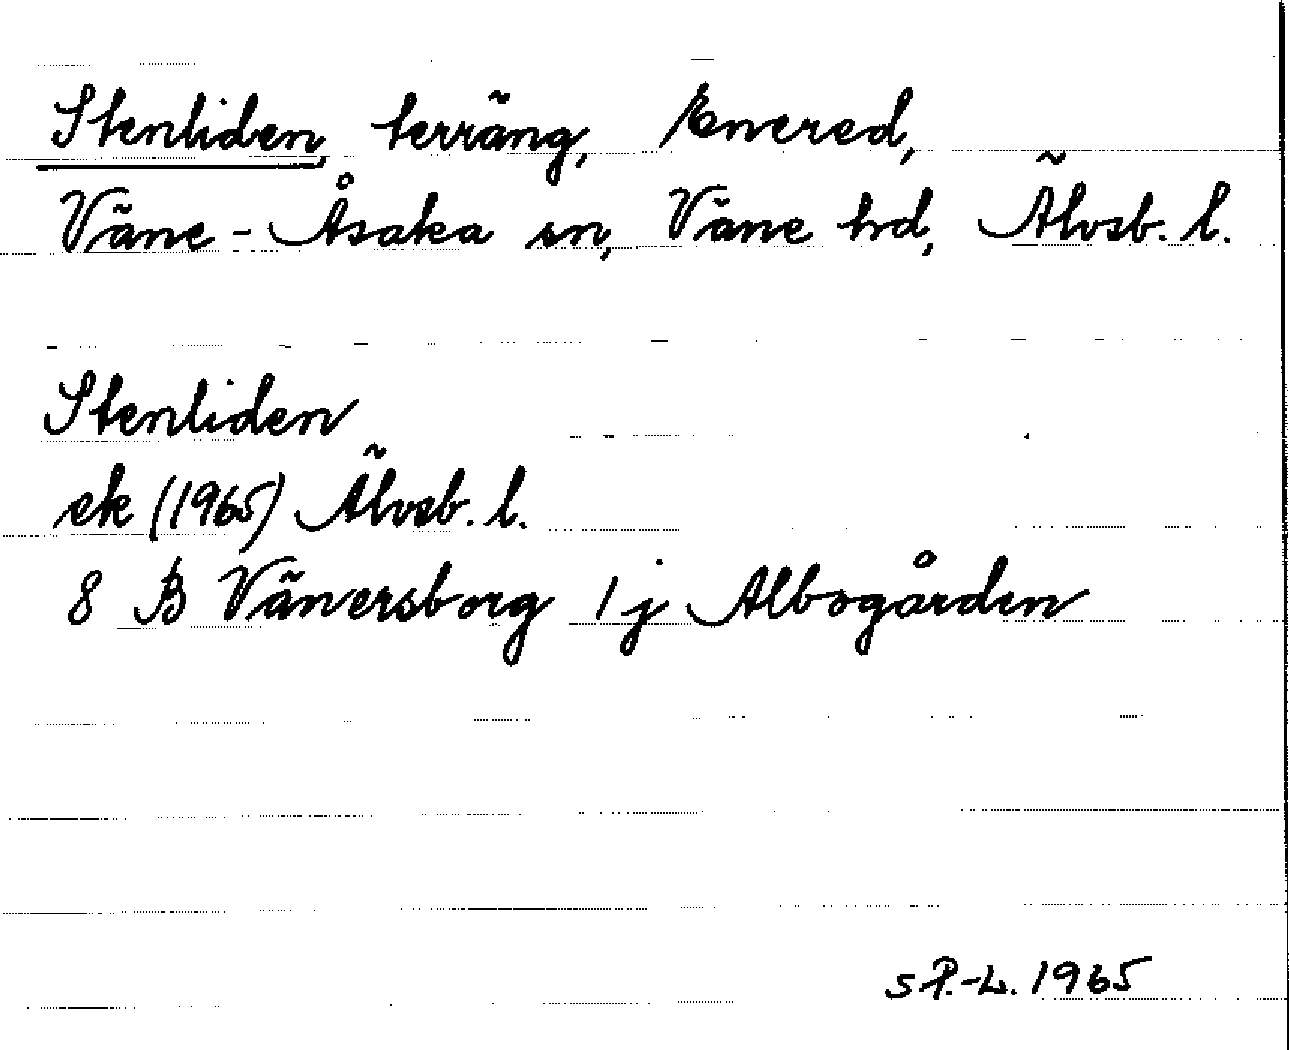 Stenliden, terräng, Enered,
Väne-Åsaka sn, Väne hd, Älvsb. l.
Stenliden
ek (1965) Älvsb. l.
8 B Vänersborg 1 j Albogården
S P.-L. 1965